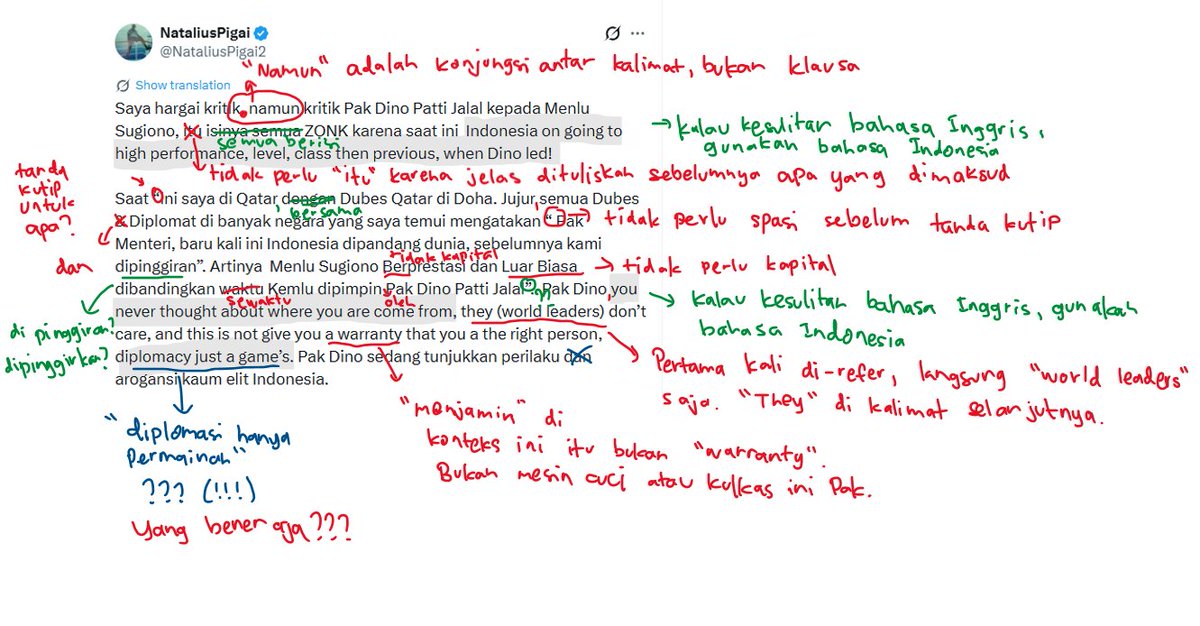 NataliusPigai
@NataliusPigai2
"Namun" adalah konjungsi antar kalimat, bukan klausa
Show translation
Saya hargai kritik, namun kritik Pak Dino Patti Jalal kepada Menlu
Sugiono, itu isinya semua ZONK karena saat ini Indonesia on going to
semua berisi
high performance, level, class then previous, when Dino led!
→ kalau kesulitan bahasa Inggris,
gunakan bahasa Indonesia
tidak perlu "itu" karena jelas dituliskan sebelumnya apa yang dimaksud
tanda
kutip
untuk
apa?
Saat "Ini saya di Qatar dengan Dubes Qatar di Doha. Jujur, semua Dubes
bersama
& Diplomat di banyak negara yang saya temui mengatakan " Pak
→ tidak perlu spasi sebelum tanda kutip
Menteri, baru kali ini Indonesia dipandang dunia, sebelumnya kami
dan
tidak kapital
dipinggiran". Artinya Menlu Sugiono Berprestasi dan Luar Biasa
→ tidak perlu kapital
dibandingkan waktu Kemlu dipimpin Pak Dino Patti Jalal". Pak Dino, you
sewaktu
oleh
never thought about where you are come from, they (world leaders) don't
→ kalau kesulitan bahasa Inggris, gunakah
bahasa Indonesia
di pinggiran?
dipinggirkan?
care, and this is not give you a warranty that you a the right person,
diplomacy just a game's. Pak Dino sedang tunjukkan perilaku dan
arogansi kaum elit Indonesia.
Pertama kali di-refer, langsung "world leaders"
saja. "They" di kalimat selanjutnya.
"menjamin" di
konteks ini itu bukan "warranty".
Bukan mesin cuci atau kulkas ini Pak.
"diplomasi hanya
permainan"
??? (!!!)
Yang bener aja???